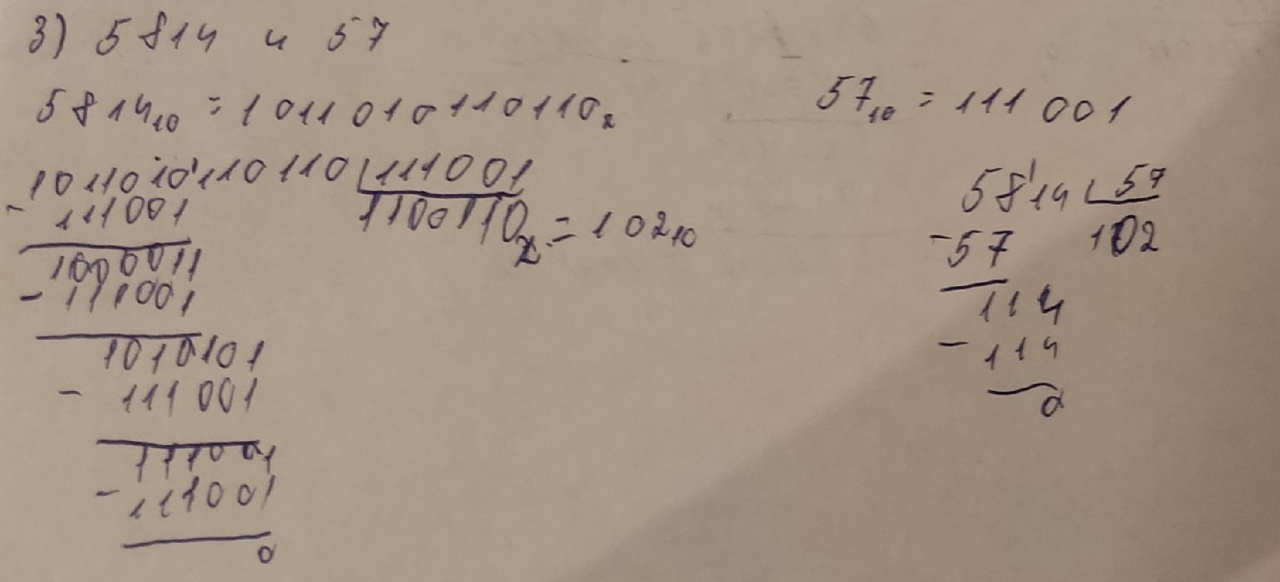 3) 5814 и 57
5814₁₀ = 1011010110110₂
57₁₀ = 111 001
1011010'110110 111001
- 111001
1100110₂ = 102₁₀
1000011
- 111001
1010101
- 111001
111001
- 111001
0
58'14 57
- 57
102
114
- 114
0